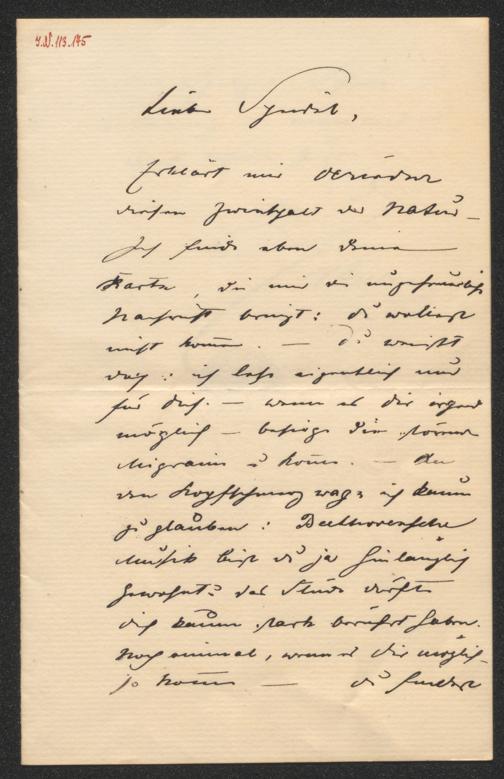 J.N. 113.175
Lieber
Erklärt mir
diesen Zwiespalt der Natur –
Ich finde eben Deine
Karte, die mir die
Nachricht bringt: Du wollest
nicht kommen. – Du weisst
doch: ich lese eigentlich nur
für Dich. – wenn es Dir irgend
möglich – besiege Deine
Migraine u komm. – An
den Kopfschmerz wage ich kaum
zu glauben: Beethovensche
Musik bist Du ja hinlänglich
gewohnt u das Stück dürfte
Dich kaum stark berührt haben.
Noch einmal, wenn es Dir möglich
so komm – Du findest